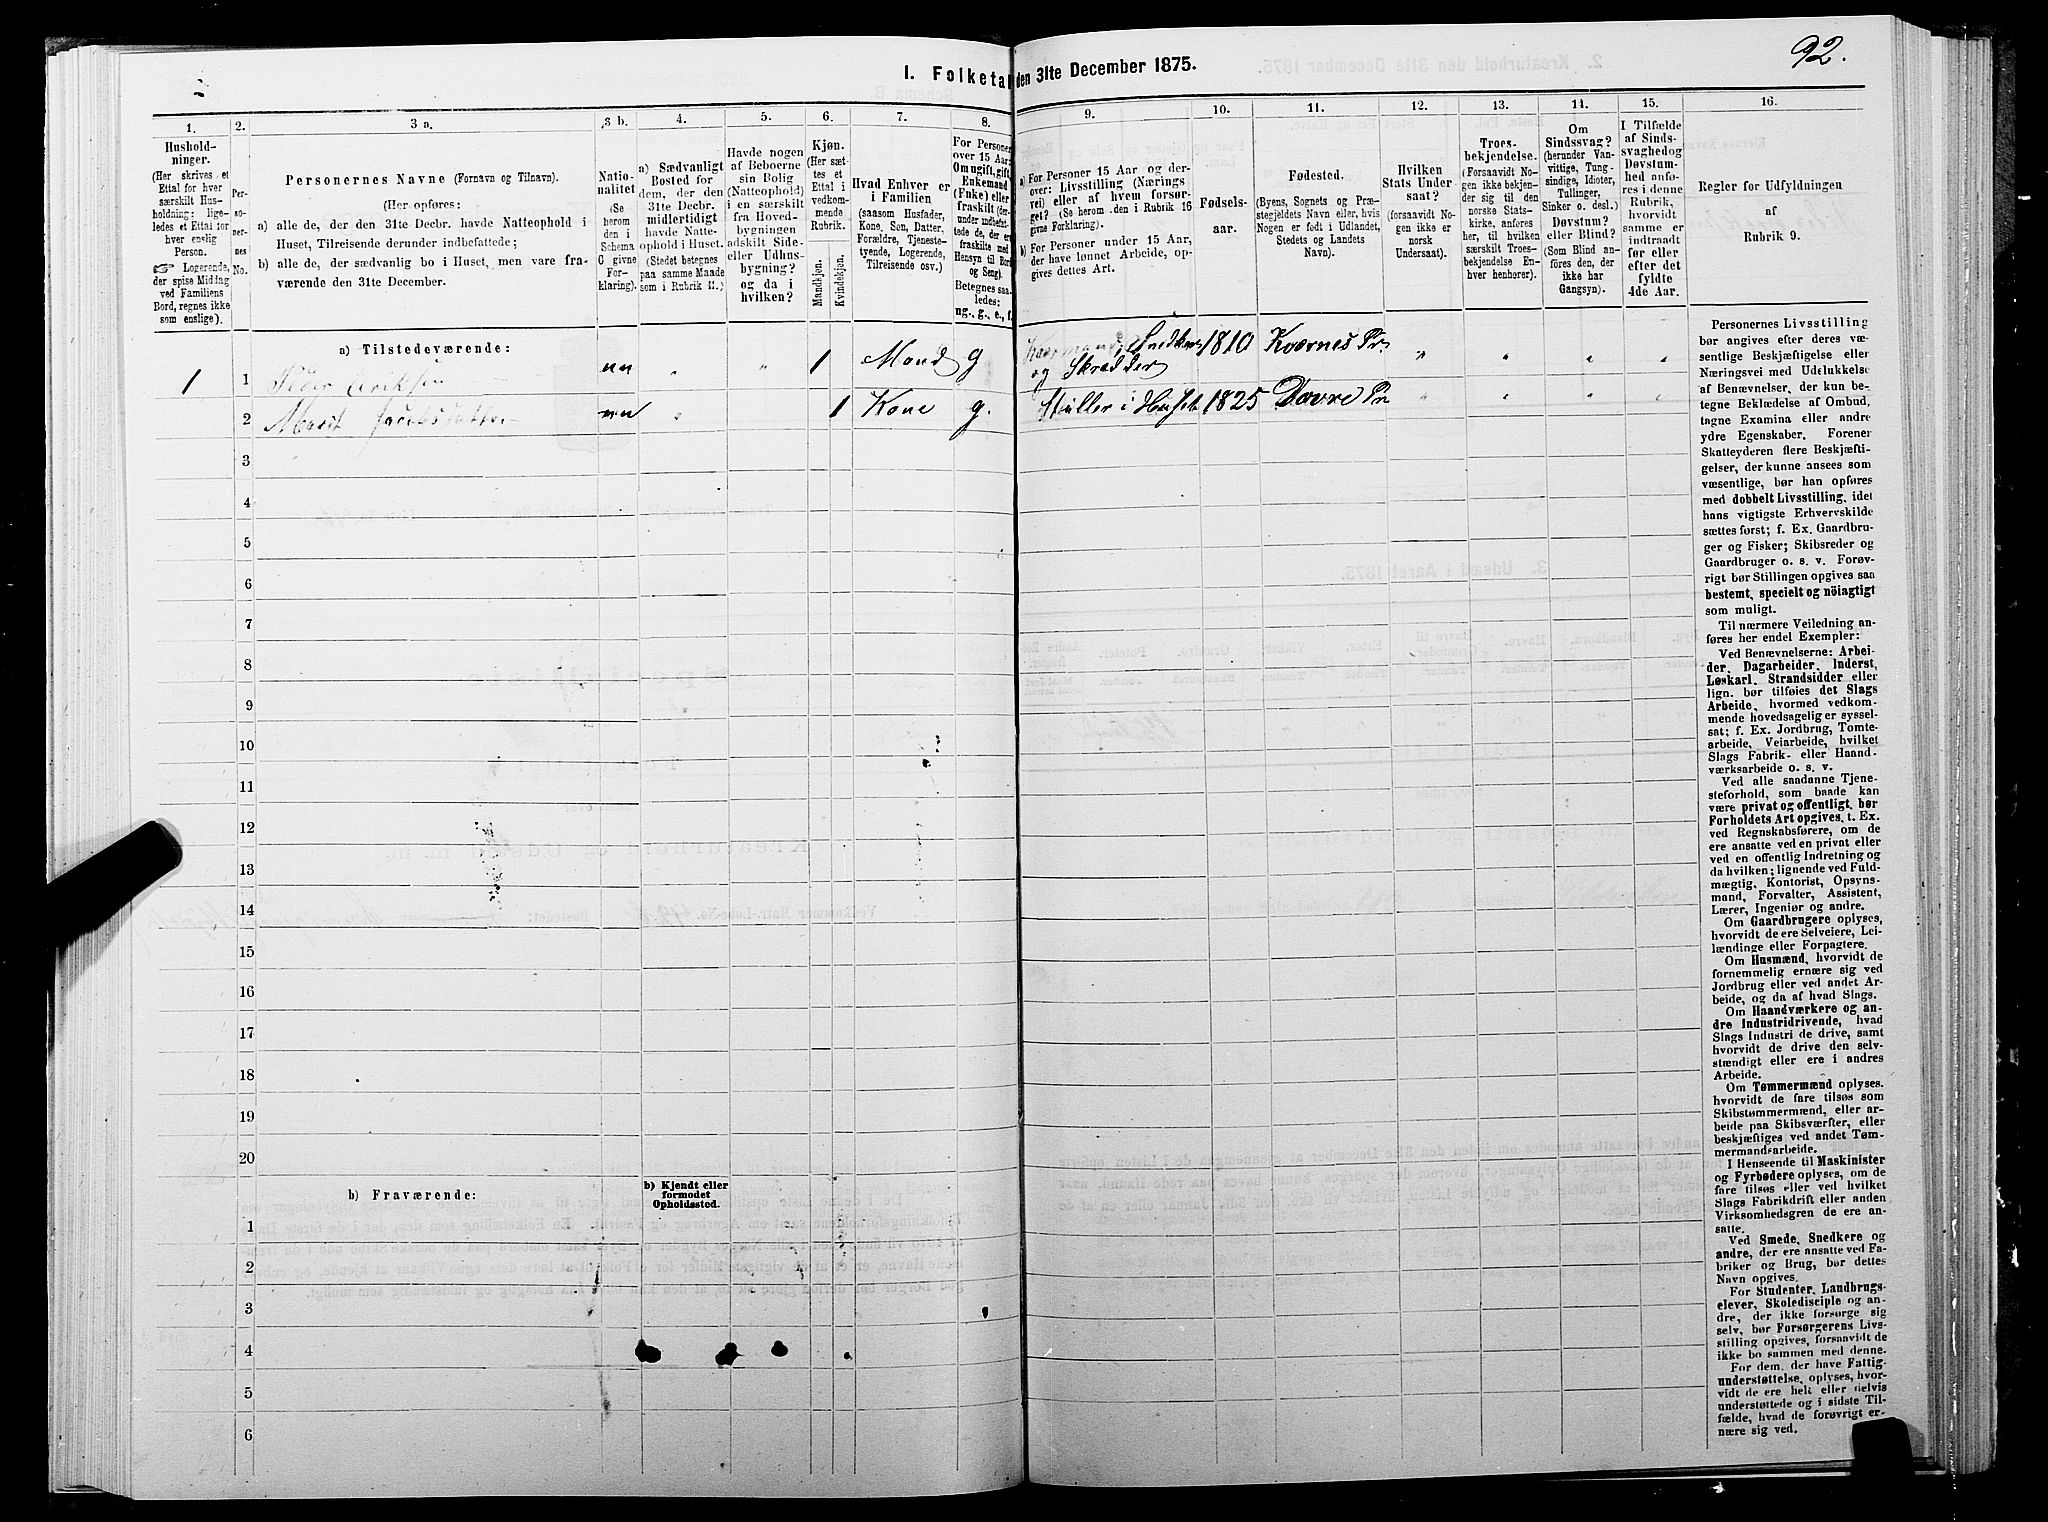 92.
I. Folketal den 31te December 1875.
1.
Hushold-
ninger.
(Her skrives et
Ettal for hver
særskilt Hus-
holdning; lige-
ledes et Ettal for
hver enslig
Person.
☞ Logerende,
der spise Middag
ved Familiens
Bord, regnes ikke
som enslige).
2.
Per-
so-
ner-
nes
No.
3 a.
Personernes Navne (Fornavn og Tilnavn).
(Her opføres:
a) alle de, der den 31te Decbr. havde Natteophold i
Huset, Tilreisende derunder indbefattede;
b) alle de, der sædvanlig bo i Huset, men vare fra-
værende den 31te December.
3 b.
Natio-
nalitet
(Se
herom
den i
Schema
C givne
For-
klaring).
4.
a) Sædvanligt
Bosted for
dem, der den
31te Decbr.
midlertidigt
havde Natte-
ophold i Huset.
(Stedet betegnes
paa samme Maade
som i Rubrik 11.)
5.
Havde nogen
af Beboerne
sin Bolig
(Natteophold)
i en særskilt
fra Hoved-
bygningen
adskilt Side-
eller Udhus-
bygning?
og da i
hvilken?
6.
Kjøn.
(Her sæt-
tes et
Ettal i
vedkom-
mende
Rubrik.
Mandkjøn.
Kvindekjøn.
7.
Hvad Enhver er
i Familien
(saasom Husfader,
Kone, Søn, Datter,
Forældre, Tjeneste-
tyende, Logerende,
Tilreisende osv.)
8.
For Personer
over 15 Aar:
Om ugift, gift,
Enkemand
(Enke) eller
fraskilt (der-
under indbefat-
tede de, der ere
fraskilte med
Hensyn til Bord
og Seng).
Betegnes saa-
ledes:
ug., g., e., f.
9.
a) For Personer 15 Aar og der-
over: Livsstilling (Nærings-
vei) eller af hvem forsør-
get? (Se herom den i Rubrik 16
givne Forklaring).
b) For Personer under 15 Aar,
der have lønnet Arbeide, op-
gives dettes Art.
10.
Fødsels-
aar.
11.
Fødested.
(Byens, Sognets og Præ-
stegjeldets Navn eller, hvis
Nogen er født i Udlandet,
Stedets og Landets
Navn).
12.
Hvilken
Stats Under-
saat?
(forsaavidt No-
gen ikke er
norsk
Undersaat).
13.
Troes-
bekjendelse.
(Forsaavidt No-
gen ikke bekjen-
der sig til den
norske Stats-
kirke, anføres
her, til hvilken
særskilt Troes-
bekjendelse En-
hver henhører).
14.
Om
Sindssvag?
(herunder Van-
vittige, Tung-
sindige, Idioter,
Tullinger,
Sinker o. desl.)
Døvstum?
eller Blind?
(Som Blind an-
føres den, der
ikke har
Gangsyn).
15.
I Tilfælde
af Sinds-
svaghed og
Døvstum-
hed anfø-
res i denne
Rubrik,
hvorvidt
samme er
indtraadt
før eller
efter det
fyldte
4de Aar.
16.
Regler for Udfyldningen
af
Rubrik 9.
a) Tilstedeværende:
1 1 Peder Eriksen nn „ „ 1 Mand g Snedker og Skrædder 1810 Kværnes Pr. „ „ „ „
2 Marit Jacobsdatter nn „ 1 Kone g. Stiller i Huset 1825 Dovre Pr „ „ „ „
3
4
5
6
7
8
9
10
11
12
13
14
15
16
17
18
19
20
b) Fraværende:
b) Kjendt eller
formodet
Opholdssted.
1
2
3
4
5
6
Personernes Livsstilling
bør angives efter deres væ-
sentlige Beskjæftigelse eller
Næringsvei med Udelukkelse
af Benævnelser, der kun be-
tegne Beklædelse af Ombud,
tagne Examina eller andre
ydre Egenskaber. Forener
Skatteyderen flere Beskjæfti-
gelser, der kunne ansees som
væsentlige, bør han opføres
med dobbelt Livsstilling, idet
hans vigtigste Erhvervskilde
sættes først; f. Ex. Gaardbru-
ger og Fisker; Skibsreder og
Gaardbruger o. s. v. Forøv-
rigt bør Stillingen opgives saa
bestemt, specielt og nöiagtigt
som muligt.
Til nærmere Veiledning an-
føres her endel Exempler:
Ved Benævnelserne: Arbei-
der, Dagarbeider, Inderst,
Løskarl, Strandsidder eller
lign. bør tilføies det Slags
Arbeide, hvormed vedkom-
mende hovedsagelig er syssel-
sat; f. Ex. Jordbrug, Tomte-
arbeide, Veiarbeide, hvilket
Slags Fabrik- eller Haand-
værksarbeide o. s. v.
Ved alle saadanne Tjene-
steforhold, som baade kan
være privat og offentligt, bør
Forholdets Art opgives, t. Ex.
ved Regnskabsførere, om de
ere ansatte ved en privat eller
ved en offentlig Indretning og
da hvilken; lignende ved Fuld-
mægtig, Kontorist, Opsyns-
mand, Forvalter, Assistent,
Lærer, Ingeniør og andre.
Om Gaardbrugere oplyses,
hvorvidt de ere Selveiere, Lei-
lændinge eller Forpagtere.
Om Husmænd, hvorvidt de
fornemmelig ernære sig ved
Jordbrug eller ved andet Ar-
beide, og da af hvad Slags.
Om Haandværkere og an-
dre Industridrivende, hvad
Slags Industri de drive, samt
hvorvidt de drive den selv-
stændigt eller ere i andres
Arbeide.
Om Tømmermænd oplyses,
hvorvidt de fare tilsøs som
Skibstømmermænd, eller ar-
beide paa Skibsværfter, eller
beskjæftiges ved andet Tøm-
mermandsarbeide.
I Henseende til Maskinister
og Fyrbødere oplyses, om de
fare tilsøs eller ved hvilket
Slags Fabrikdrift eller anden
Virksomhedsgren de ere an-
satte.
Ved Smede, Snedkere og
andre, der ere ansatte ved Fa-
briker og Brug, bør dettes
Navn opgives.
For Studenter, Landbrugs-
elever, Skoledisciple og an-
dre, der ikke forsørge sig
selv, bør Forsørgerens Livs-
stilling opgives, forsaavidt de
ikke bo sammen med denne.
For dem, der have Fattig-
understøttelse, oplyses, hvor-
vidt de ere helt eller delvis
understøttede og i sidste Til-
fælde, hvad de forøvrigt er-
nære sig ved.